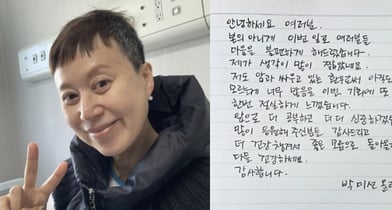 안녕하세요 여러분.
본의 아니게 이번 일로 여러분들
마음을 불편하게 해드렸습니다.
제가 생각이 많이 짧았네요.
저도 암과 싸우고 있는 환우로서 아직도
모르는게 너무 많음을 이번 기회에 또
한번 절실하게 느꼈습니다.
앞으로 더 공부하고 더 더 신중하겠습
많이 응원해 주신분들 감사드리고
더 건강해져서 좋은 모습으로 돌아
다들 건강하세요.
감사합니다.
박미선 올